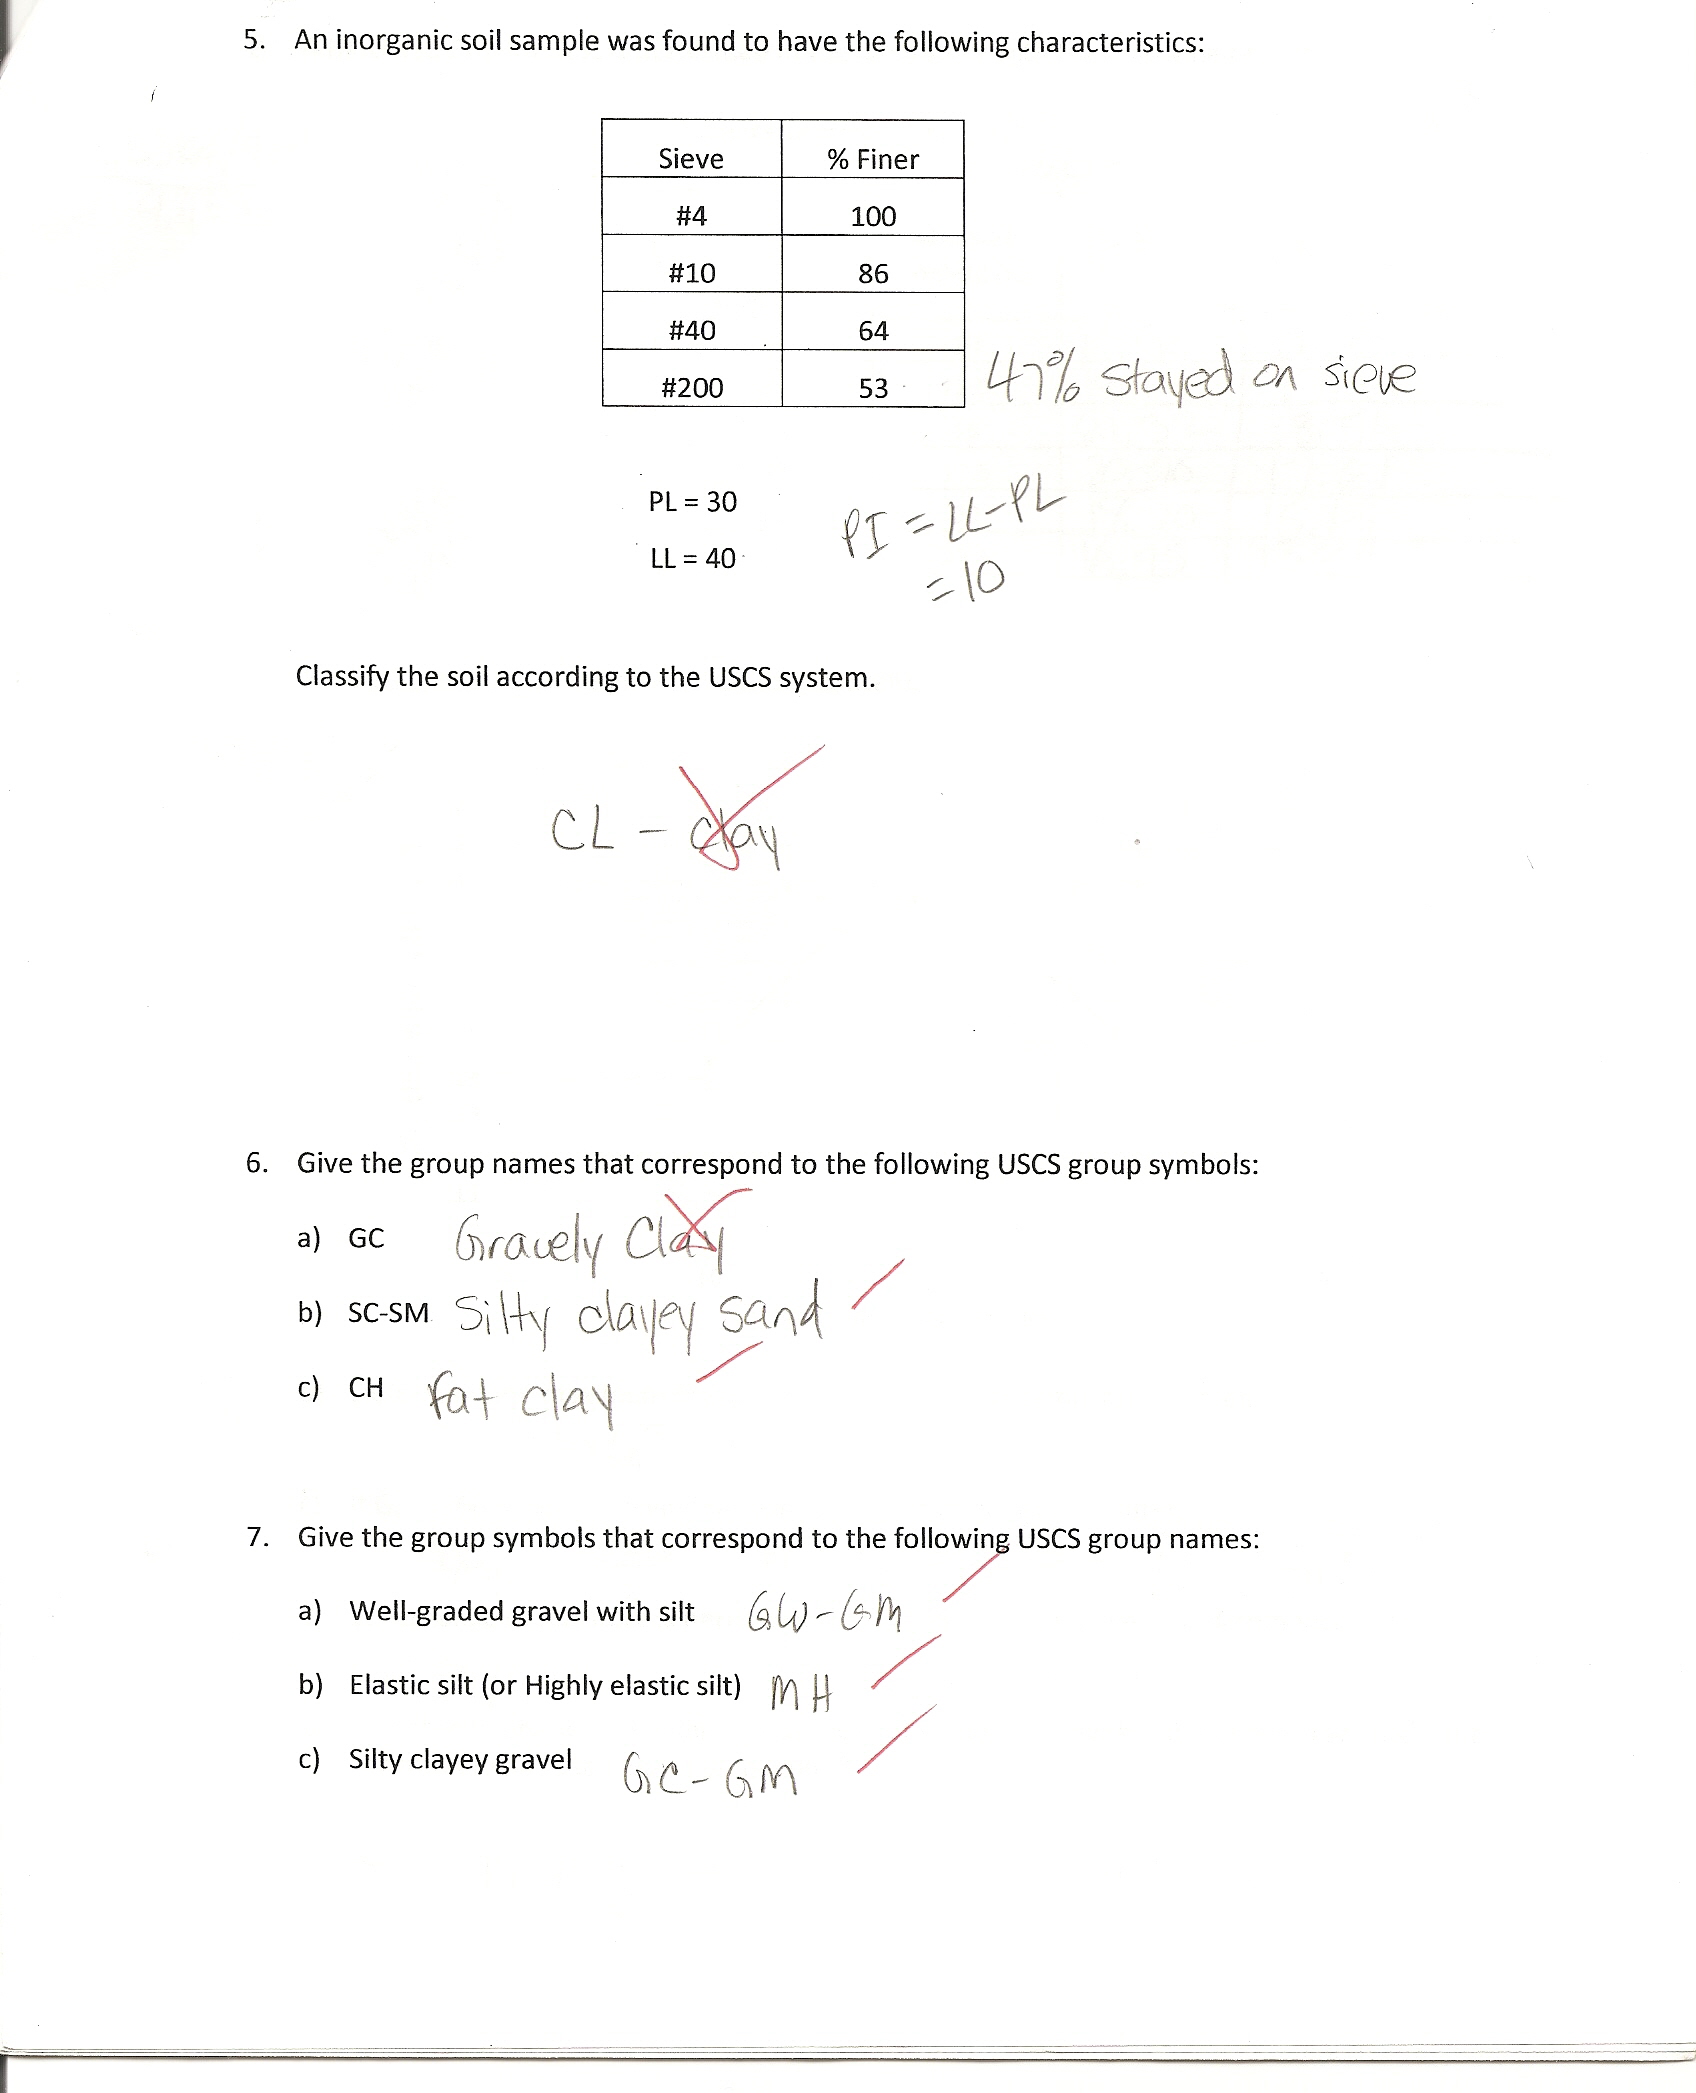 5. An inorganic soil sample was found to have the following characteristics:
Sieve % Finer
#4 100
#10 86
#40 64
#200 53 47% stayed on sieve
PL = 30 PI = LL-PL
LL = 40 =10
Classify the soil according to the USCS system.
CL - clay
6. Give the group names that correspond to the following USCS group symbols:
a) GC Gravely Clay
b) SC-SM Silty clayey sand
c) CH fat clay
7. Give the group symbols that correspond to the following USCS group names:
a) Well-graded gravel with silt GW-GM
b) Elastic silt (or Highly elastic silt) MH
c) Silty clayey gravel GC-GM